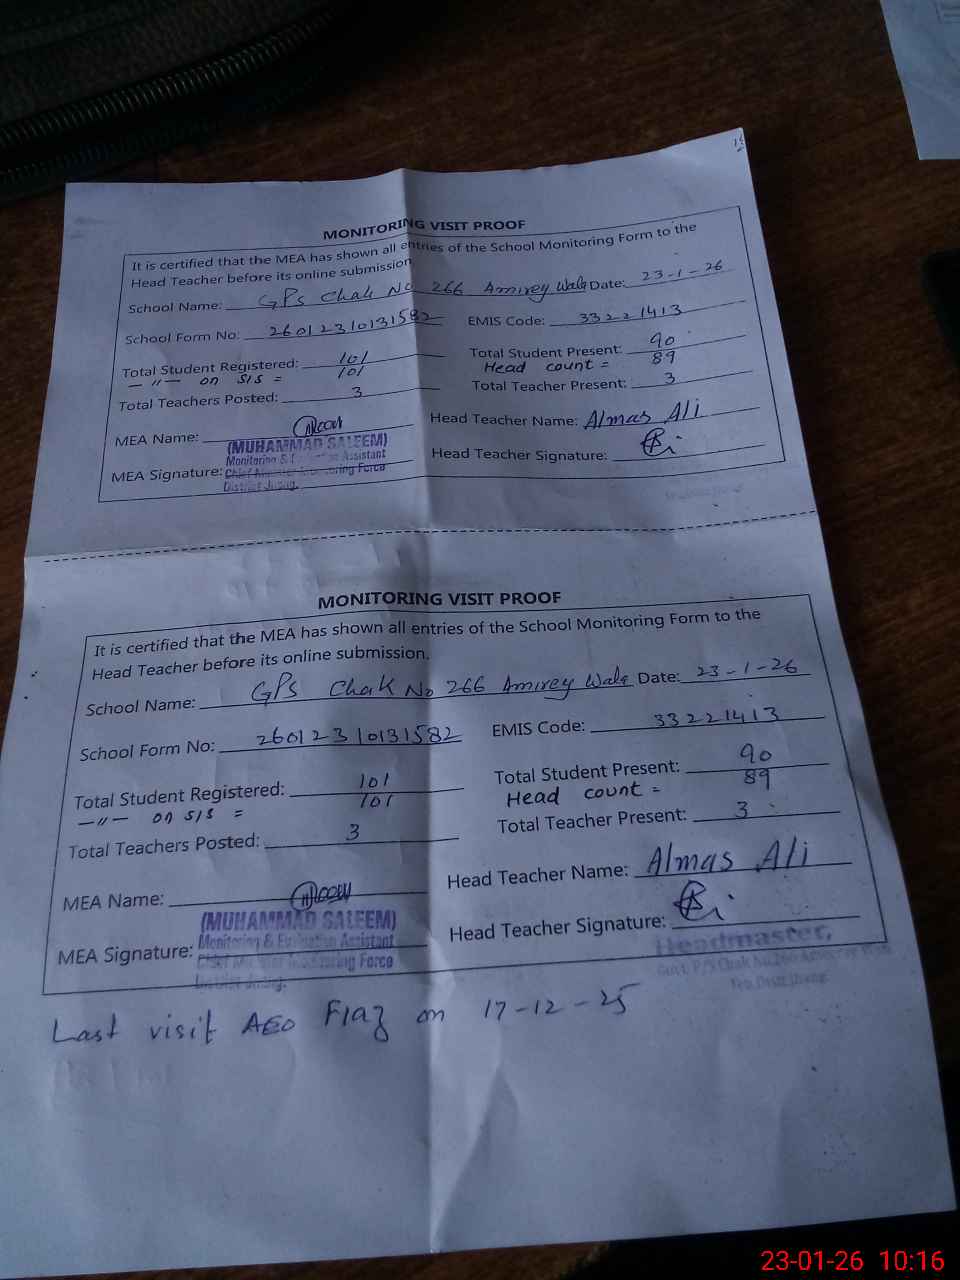 MONITORING VISIT PROOF
It is certified that the MEA has shown all entries of the School Monitoring Form to the
Head Teacher before its online submission
School Name: GPS Chak No 266 Amirey Wala Date: 23-1-26
School Form No: 26012310131582 EMIS Code: 33221413
Total Student Registered: 101 Total Student Present: 90
—〃— on SIS = 101 Head count = 89
Total Teachers Posted: 3 Total Teacher Present: 3
MEA Name: Head Teacher Name: Almas Ali
(MUHAMMAD SALEEM)
Monitoring & Evaluation Assistant
MEA Signature: Chief Minister Monitoring Force Head Teacher Signature:
District Jhang.
MONITORING VISIT PROOF
It is certified that the MEA has shown all entries of the School Monitoring Form to the
Head Teacher before its online submission.
School Name: GPS Chak No 266 Amirey Wala Date: 23-1-26
School Form No: 26012310131582 EMIS Code: 33221413
Total Student Registered: 101 Total Student Present: 90
—〃— on SIS = 101 Head count = 89
Total Teachers Posted: 3 Total Teacher Present: 3
MEA Name: Head Teacher Name: Almas Ali
(MUHAMMAD SALEEM)
MEA Signature: Monitoring & Evaluation Assistant Head Teacher Signature:
Chief Minister Monitoring Force
District Jhang.
Headmaster,
Govt. P/S Chak No.266
Last visit AEO Fiaz on 17-12-25
23-01-26 10:16